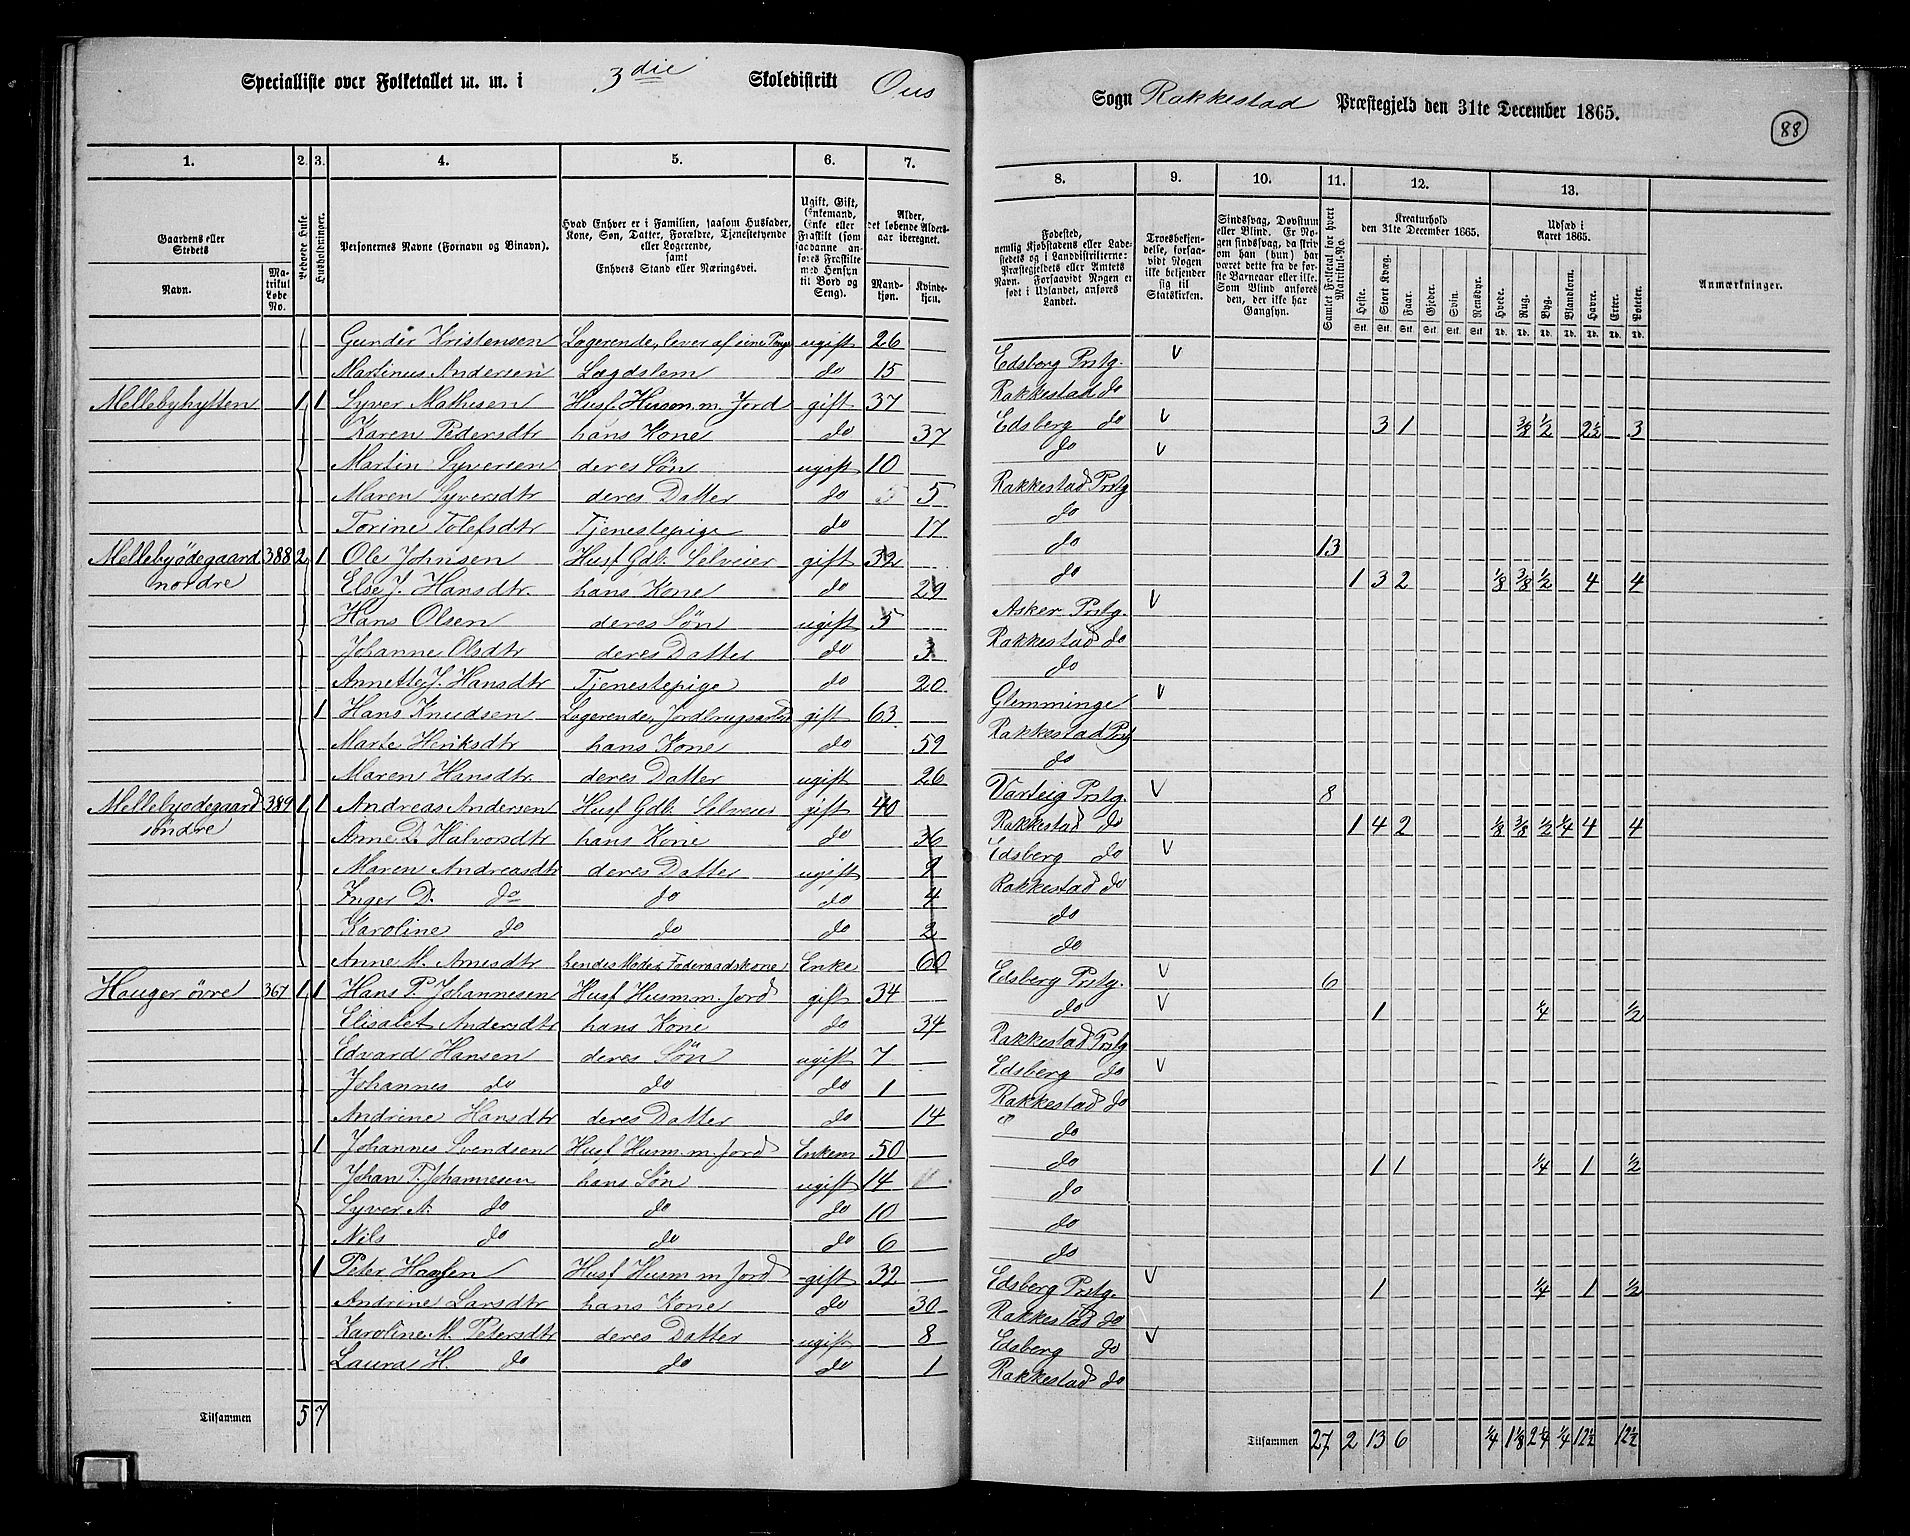 Specialliste over Folketallet m. m. i 3die Skoledistrikt Ous
Sogn Rakkestad Præstegjeld den 31te December 1865.
88
1. 2. 3. 4. 5. 6. 7.
8. 9. 10. 11. 12. 13.
Gaardens eller Stedets
Navn.
Matrikul Løbe No.
Beboede Huse
Husholdninger.
Personernes Navne (Fornavn og Binavn).
Hvad Enhver er i Familien, saasom Husfader, Kone, Søn, Datter, Forældre, Tjenestetyende eller Logerende,
samt
Enhvers Stand eller Næringsvei.
Ugift, Gift, Enkemand, Enke eller Fraskilt (som saadanne anføres Fraskilte med Hensyn til Bord og Seng).
Alder, det løbende Alders-aar iberegnet.
Mandkjøn. Kvindekjøn.
Fødested, nemlig Kjøbstadens eller Ladestedets og i Landdistrikterne: Præstegjeldets eller Amtets Navn. Forsaavidt Nogen er født i Udlandet, anføres Landet.
Troesbekjendelse, forsaavidt Nogen ikke bekjender sig til Statskirken.
Sindssvag, Døvstum eller Blind. Er Nogen sindssvag, da skriv om han (hun) har været dette fra de første Barneaar eller ikke. Som Blind anføres den, der ikke har Gangsyn.
Samlet Folketal for hvert Matrikul-No.
Kreaturhold den 31te December 1865.
Heste. Stort Kvæg. Faar. Gjeder. Svin. Rensdyr.
Udsæd i Aaret 1865.
Hvede. Rug. Byg. Blandkorn. Havre. Erter. Poteter.
Anmærkninger.
Gunder Kristensen Logerende, lever af sine Penge ugift 26 Edsberg Prstg. V
Martinus Andersen Lægdslem do 15 Rakkestad do
Mellebyhytten 1 1 Syver Mathisen Husf. Husm. m. Jord gift 37 Edsberg do V 3 1 3/8 1/2 2 1/2 3
Karen Pedersdtr hans Kone do 37 do V
Martin Syversen deres Søn ugift 10 Rakkestad Prstg
Maren Syversdtr deres Datter do 5 do
Torine Tolefsdtr Tjenestepige do 17 do 13
Mellebyødegaard nordre 388 2 1 Ole Johnsen Husf. Gdb. Selveier gift 32 do 1 3 2 1/8 3/8 1/2 4 4
Else J. Hansdtr. hans Kone do 29 Asker Prstg. V
Hans Olsen deres Søn ugift 5 Rakkestad do
Johanne Olsdtr deres Datter do 3 do
Annette J. Hansdtr Tjenestepige do 20 Glemminge V
1 Hans Knudsen Logerende, Jordbrugsarbeid gift 63 Rakkestad Prstg
Marte Heriksdtr hans Kone do 59 do
Maren Hansdtr. deres Datter ugift 26 Varteig Prstg. V 8
Mellebyødegaard søndre 389 1 1 Andreas Andersen Husf Gdb. Selveier gift 40 Rakkestad do 1 4 2 1/8 3/8 1/2 1/4 4 4
Anne D. Halvorsdtr hans Kone do 36 Edsberg do V
Maren Andreasdtr deres Datter ugift Rakkestad do
Inger D. do do do 4 do
Karoline do do do 2 do
Anne M. Arnesdtr hendes Moder, Føderaadskone Enke 60 Edsberg Prstg. V 6
Hauger övre 367 1 1 Hans P. Johannesen Husf Husm m. Jord gift 34 do V 1 1/4 1/2
Elisabet Andersdtr hans Kone do 34 Rakkestad Prstg
Edvard Hansen deres Søn ugift 7 Edsberg do V
Johannes do do do 1 Rakkestad do
Andrine Hansdtr deres Datter do 14 do
1 Johannes Svendsen Husf Husm. m. Jord Enkem 50 do 1 1 1/4 1 1/2
Johan P. Johannesen hans Søn ugift 14 do
Syver A. do do do 10 do
Nils do do do 6 do
1 Peter Hansen Husf Husm m Jord gift 32 Edsberg Prstg. V 1 1/4 1 1/2
Andrine Larsdtr hans Kone do 30 Rakkestad do
Karoline M. Petersdtr deres Datter ugift 8 Edsberg do V
Laura H. do do do 1 Rakkestad do
Tilsammen 5 7
Tilsammen 27 2 13 6 1/4 1 1/8 2 1/4 1/4 12 1/2 12 1/2